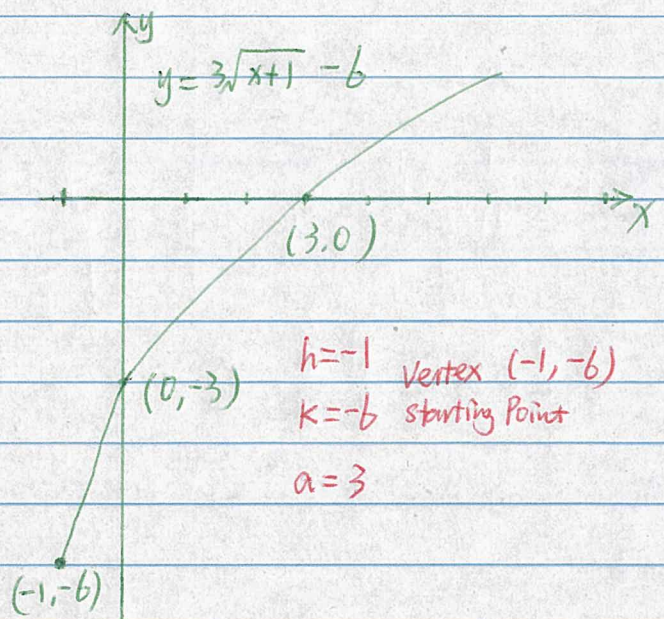 y
y = 3√(x+1) - 6
x
(3.0)
h=-1
vertex (-1, -6)
(0,-3)
k=-6
starting Point
a=3
(-1,-6)